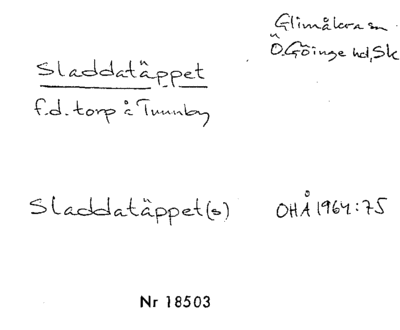 Glimåkra sn
Ö.Göinge hd, Sk
Sladdatäppet
f.d. torp å Tunnby
Sladdatäppet(s) OHÅ 1964:75
Nr 18503